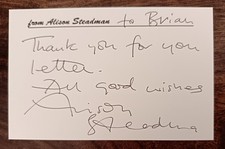 from Alison Steadman to Brian
Thank you for you
letter.
All good wishes
Alison
Steadman